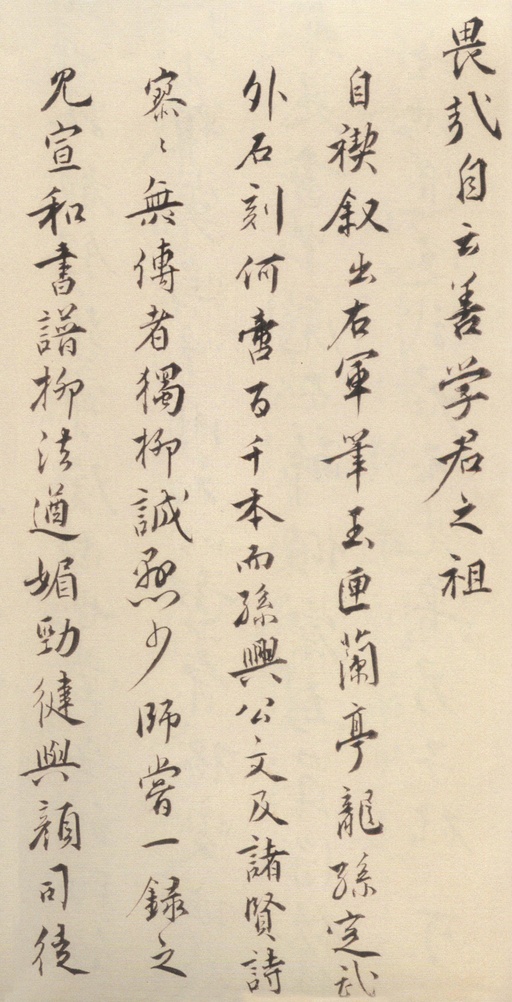 畏哉自云善学君之祖
自禊叙出右軍筆玉匣蘭亭龍孫定武
外石刻何啻百千本而孫興公文及諸賢詩
寥〻無傳者獨柳誠懸少師嘗一錄之
見宣和書譜柳法遒媚勁健與顔司徒